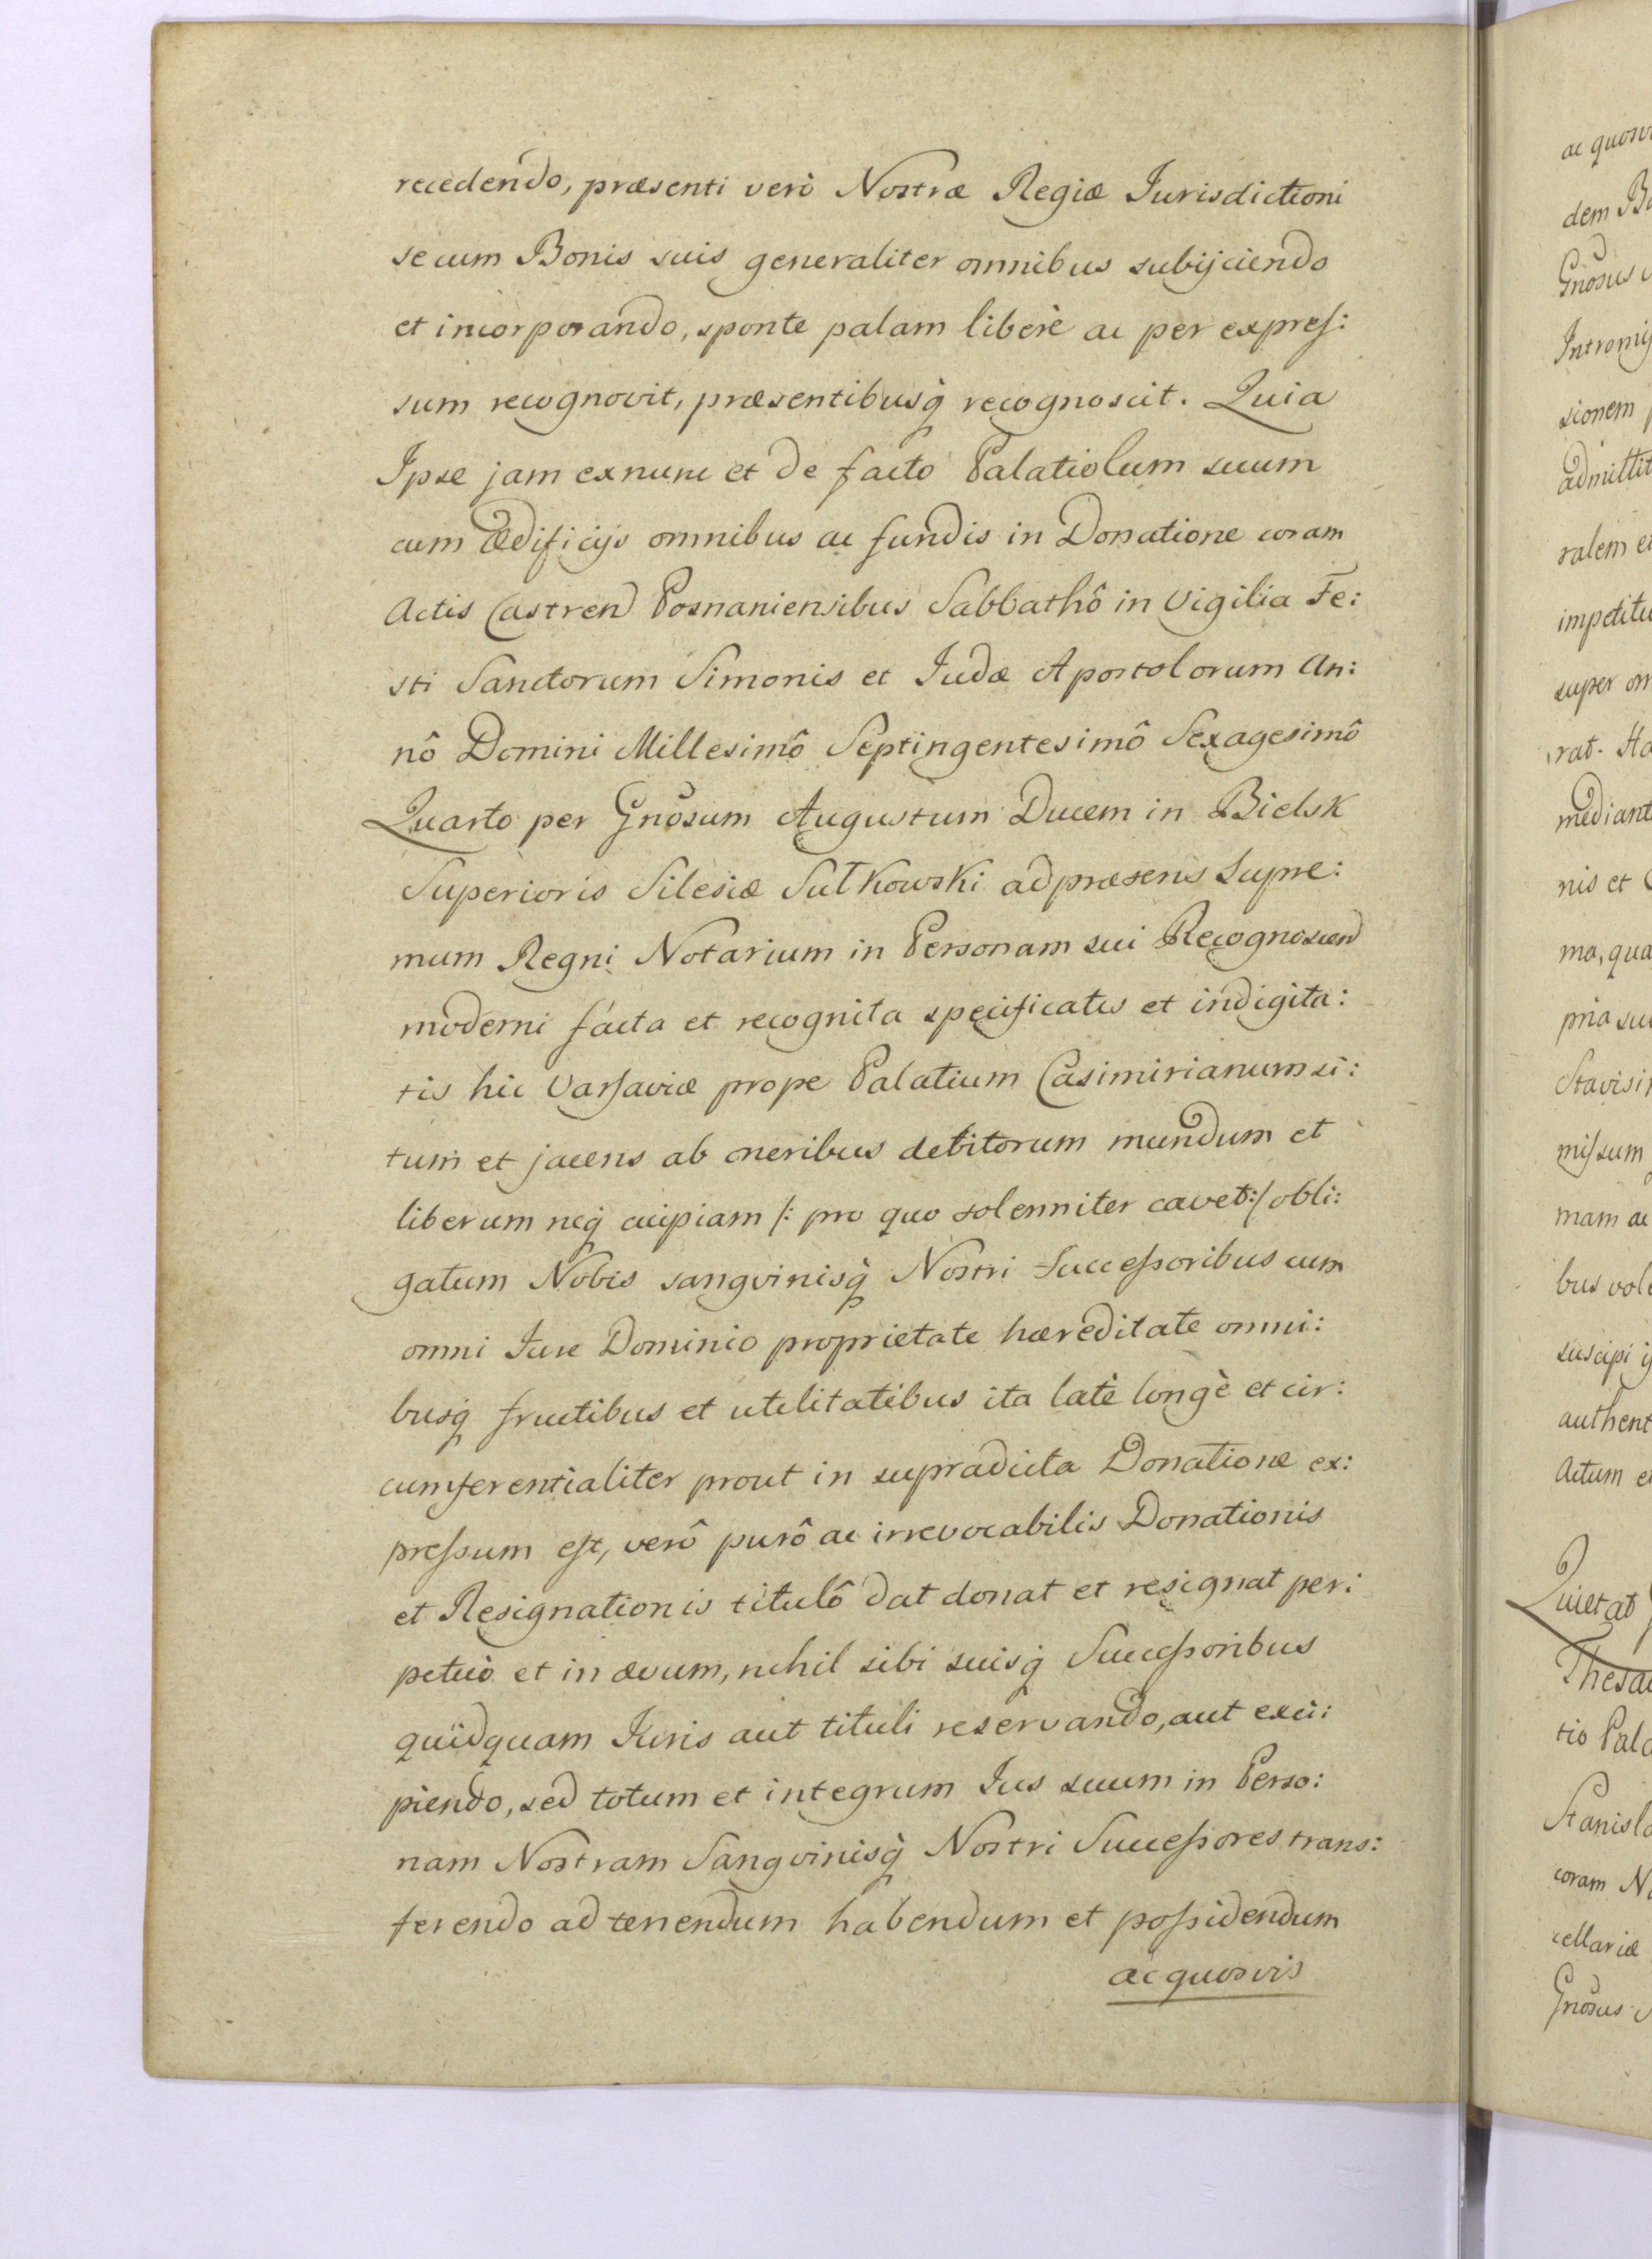 recedendo, præsenti verò Nostræ Regiæ Iurisdictioni
secum Bonis suis generaliter omnibus subijciendo
et incorporando, sponte palam liberè ac per expreſ:
sum recognovit, præsentibusq̀ recognoscit. Quia
Ipse jam exnunc et de facto Palatiolum suum
cum Ædificijs omnibus ac fundis in Donatione coram
Actis Castren Posnaniensibus Sabbathô in Vigilia Fe:
sti Sanctorum Simonis et Iudæ Apostolorum An:
nô Domini Millesimô Septingentesimô Sexagesimô
Quarto per Gnosum Augustum Ducem in Bielsk
Superioris Silesiæ Sułkowski adpræsens Supre:
mum Regni Notarium in Personam sui Recognoscen
moderni facta et recognita specificatis et indigita:
tis hic Varſaviæ prope Palatium Casimirianum si:
tum et jacens ab oneribus debitorum mundum et
liberum neq̀ cuipiam /: pro quo solenniter cavet:/ obli:
gatum Nobis sangvinisq̀ Nostri Succeſsoribus cum
omni Iure Dominio proprietate hæreditate omni:
busq̀ fructibus et utilitatibus ita latè longè et cir:
cumferentialiter prout in supradicta Donatione ex:
preſsum eſt, verô purô ac irrevocabilis Donationis
et Resignationis titulô dat donat et resignat per:
petuò et in ævum, nihil sibi suisq̀ Succeſsoribus
quidquam Iuris aut tituli reservando, aut exci:
piendo, sed totum et integrum Ius suum in Perso:
nam Nostram Sangvinisq̀ Nostri Succeſsores trans:
ferendo ad tenendum habendum et poſsidendum
ac quosvis
ac quosv
dem Bo
Gnosus
Intromiſ
sionem
admittit
ralem e
impetitu
super om
rat. Ha
mediant
nis et
ma, qua
pria su
Stavisi
miſsum
mam ac
bus vole
suscipi
authent
Actum e
Quietat
Thesau
tio Pala
Stanisla
coram No
cellariæ
Gnosus